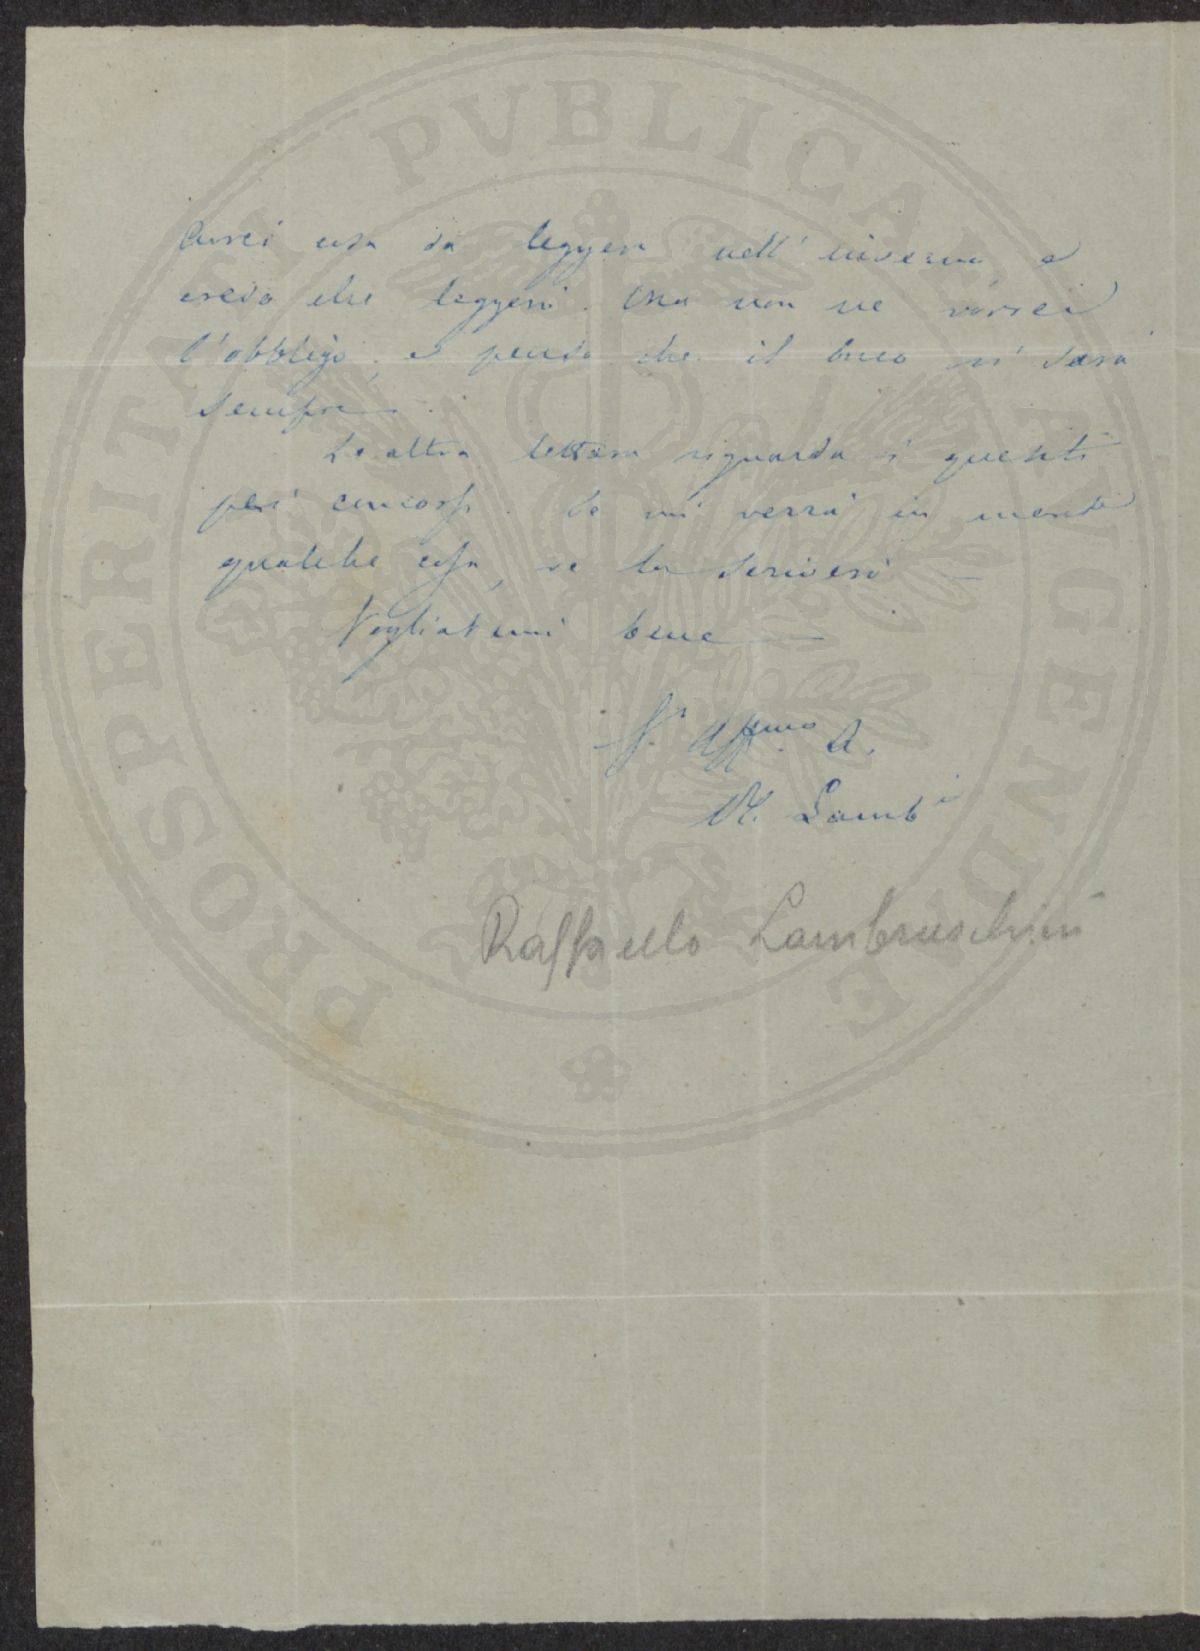 Avrei cosa da leggere nell'inverno, e
credo che leggerò. Ma non ne vorrei
l'obbligo, e penso che il buco ci sarà
sempre.
Le altra lettera riguarda i quesiti
pei concorsi. Se mi verrà in mente
qualche cosa, ve la scriverò
Vogliatemi bene
V.º Affmo A.
R. Lambi
Raffaello Lambruschini
PROSPERITATI PVBLICAE AVGENDAE